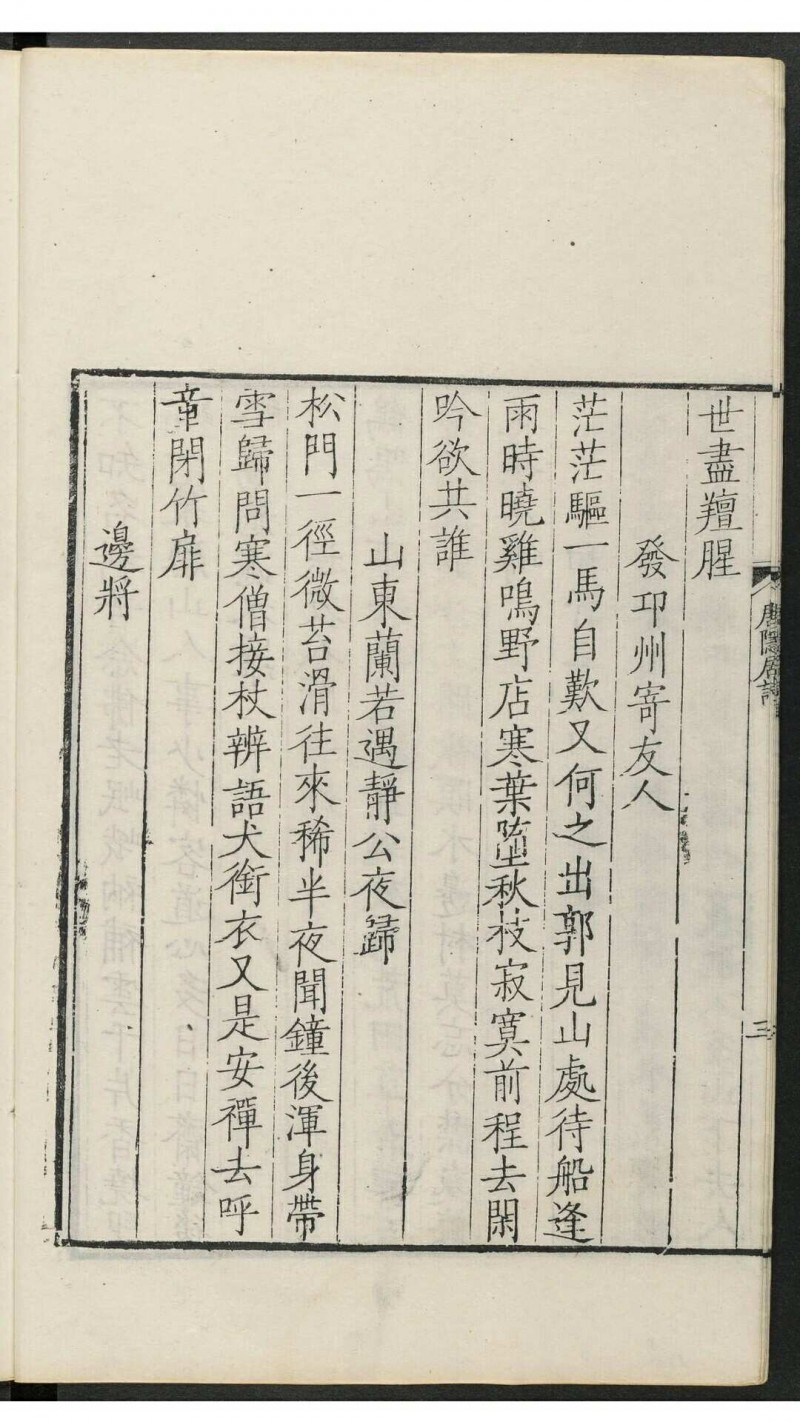 世盡羶腥
發邛州寄友人
茫茫驅一馬自歎又何之出郭見山處待船逢
雨時曉雞鳴野店寒葉墮秋枝寂寞前程去閑
吟欲共誰
山東蘭若遇靜公夜歸
松門一徑微苔滑往來稀半夜聞鐘後渾身帶
雪歸問寒僧接杖辨語犬銜衣又是安禪去呼
童閉竹扉
邊將
唐隱居詩
三